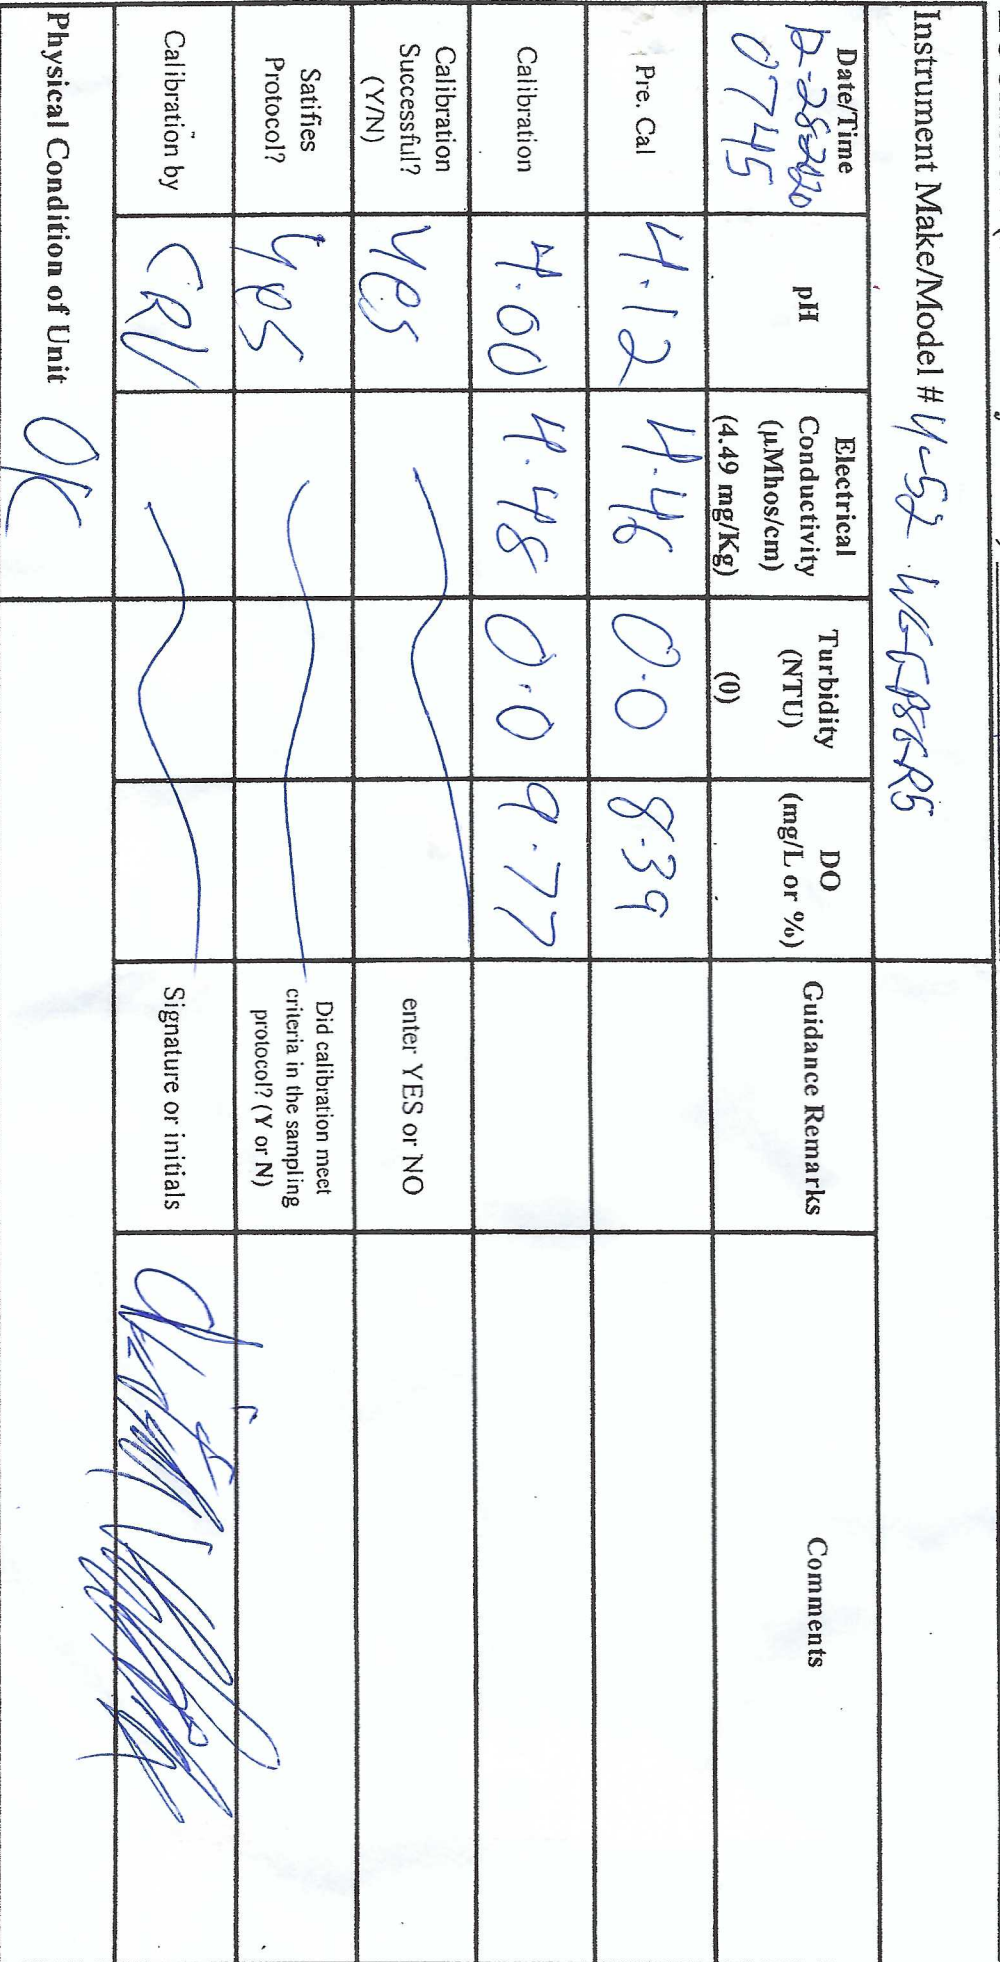 Instrument Make/Model # U-52
Date/Time
0745
pH
Electrical
Conductivity
(µMhos/cm)
(4.49 mg/Kg)
Turbidity
(NTU)
(0)
DO
(mg/L or %)
Guidance Remarks
Comments
Pre. Cal
4.12
4.46
0.0
8.39
Calibration
4.00
4.48
0.0
9.77
Calibration
Successful?
(Y/N)
yes
enter YES or NO
Satifies
Protocol?
yes
Did calibration meet
criteria in the sampling
protocol? (Y or N)
Calibration by
CRV
Signature or initials
Physical Condition of Unit OK